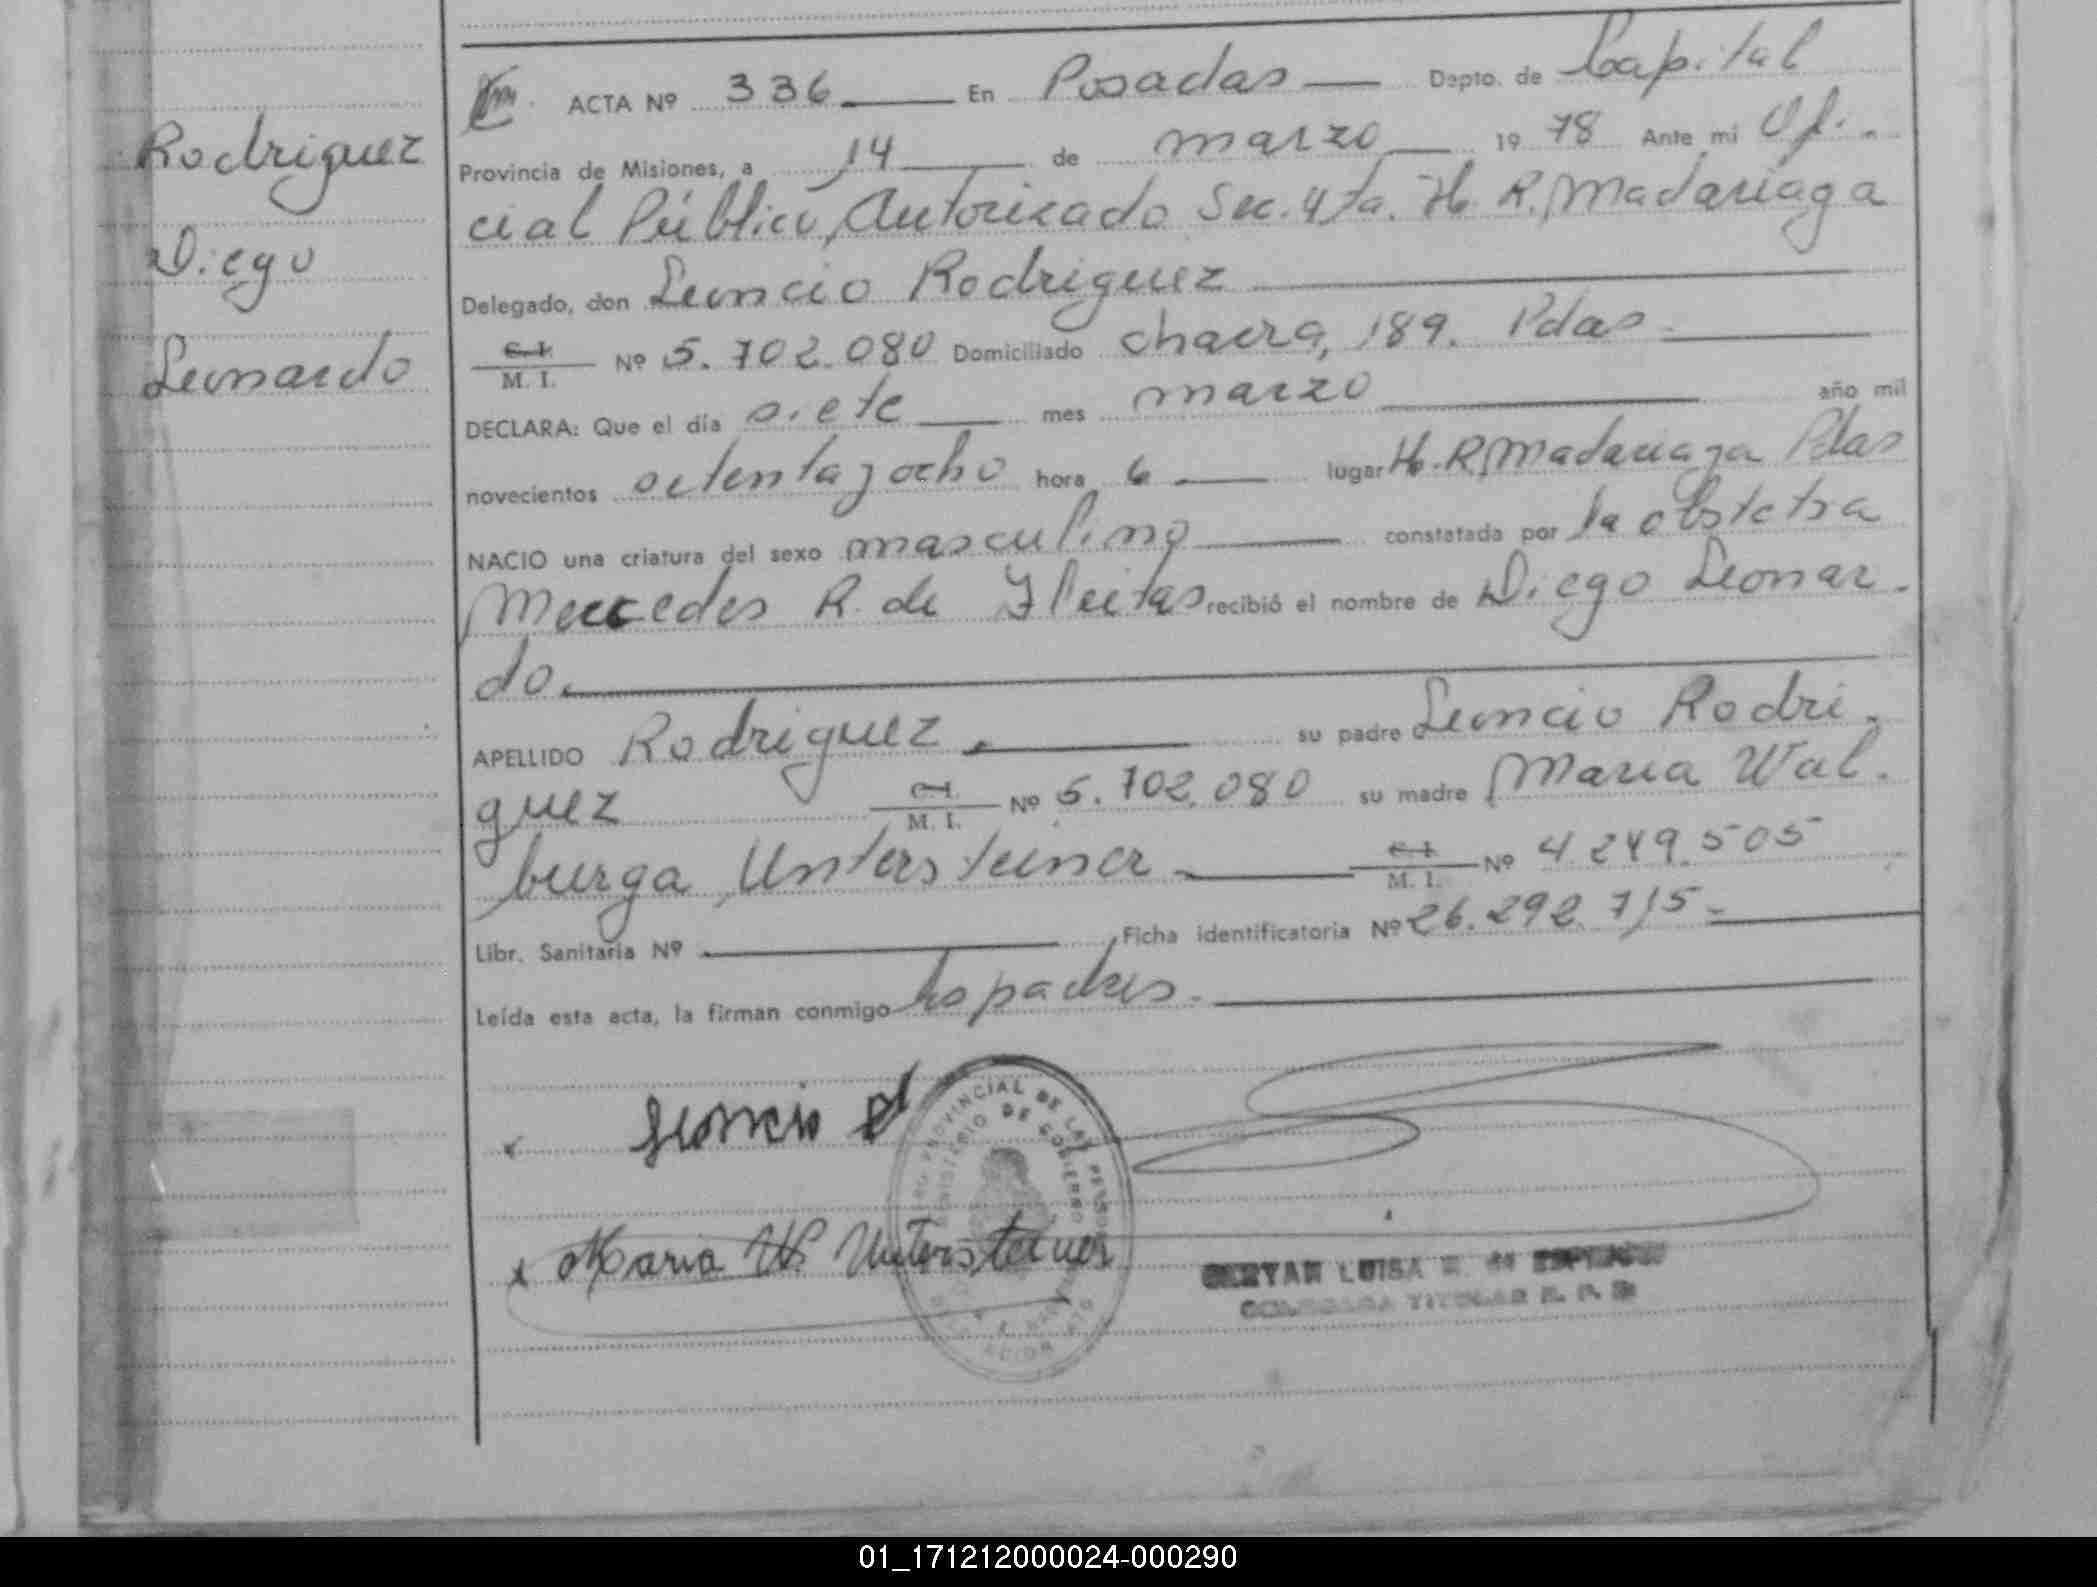 Rodriguez
Diego
Leonardo
ACTA Nº 336 En Posadas Depto. de Capital
Provincia de Misiones, a 14 de marzo 19 78 Ante mi Ofi.
cial Público, Autorizado Sec. 4ta. H. R. Madariaga
Delegado, don Leoncio Rodriguez
C. I.
M. I. Nº 5.702.080 Domiciliado chacra, 189. Pdas.
DECLARA: Que el día siete mes marzo año mil
novecientos setentayocho hora 6 lugar H. R. Madariaga Pdas
NACIO una criatura del sexo masculino constatada por la obstetra
Mercedes R. de Fleitas recibió el nombre de Diego Leonar-
do.
APELLIDO Rodriguez. su padre Leoncio Rodri-
guez C. I.
M. I. Nº 5.702.080 su madre Maria Wal-
burga Untersteiner C. I.
M. I. Nº 4.249.505
Libr. Sanitaria Nº Ficha identificatoria Nº 26.292.715-
Leída esta acta, la firman conmigo los padres.
Leoncio R
x Maria W. Untersteiner
PROVINCIAL DE LAS PERSONAS
MINISTERIO DE GOBIERNO
LUISA
TITULAR
01_171212000024-000290